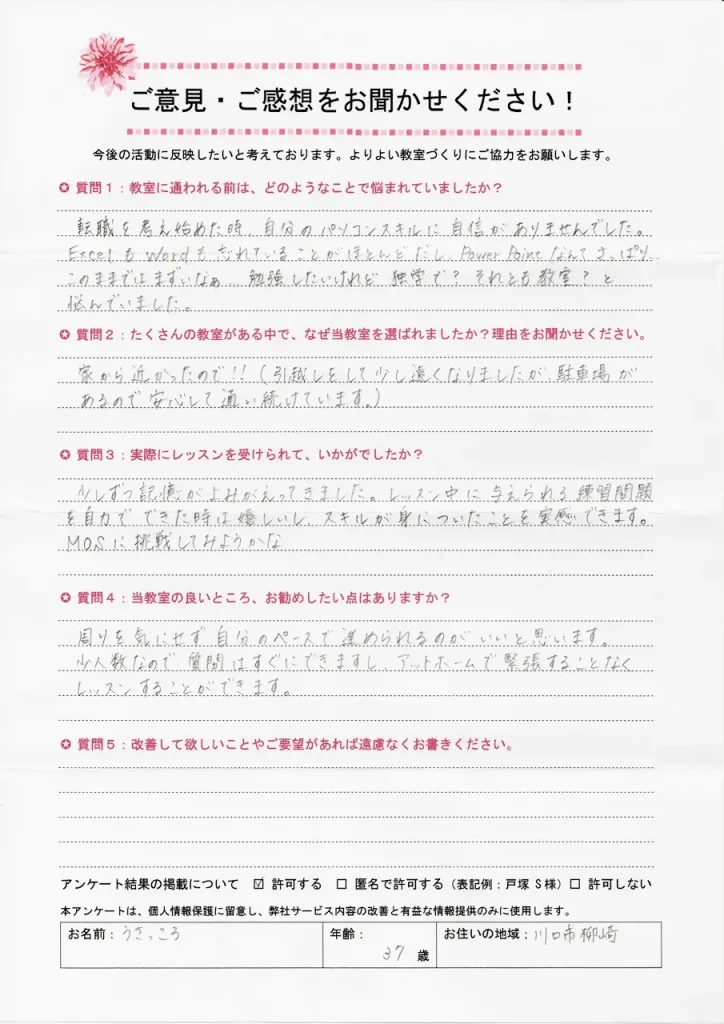 ご意見・ご感想をお聞かせください！
今後の活動に反映したいと考えております。よりよい教室づくりにご協力をお願いします。
✪ 質問１：教室に通われる前は、どのようなことで悩まれていましたか？
転職を考え始めた時、自分のパソコンスキルに自信がありませんでした。
Excelも Wordも忘れていることがほとんどだし、Power Pointなんてさっぱり…
このままではまずいなぁ… 勉強したいけれど 独学で？それとも教室？と
悩んでいました。
✪ 質問２：たくさんの教室がある中で、なぜ当教室を選ばれましたか？理由をお聞かせください。
家から近かったので！！（引越しをして少し遠くなりましたが、駐車場が
あるので安心して通い続けています。）
✪ 質問３：実際にレッスンを受けられて、いかがでしたか？
少しずつ記憶がよみがえってきました。レッスン中に与えられる練習問題
を自力でできた時は嬉しいし、スキルが身についたことを実感できます。
MOSに挑戦してみようかな
✪ 質問４：当教室の良いところ、お勧めしたい点はありますか？
周りを気にせず自分のペースで進められるのがいいと思います。
少人数なので質問はすぐにできますし、アットホームで緊張することなく
レッスンすることができます。
✪ 質問５：改善して欲しいことやご要望があれば遠慮なくお書きください。
アンケート結果の掲載について ☑ 許可する ☐ 匿名で許可する（表記例：戸塚 S 様）☐ 許可しない
本アンケートは、個人情報保護に留意し、弊社サービス内容の改善と有益な情報提供のみに使用します。
お名前：うさっころ 年齢：37 歳 お住いの地域：川口市柳崎